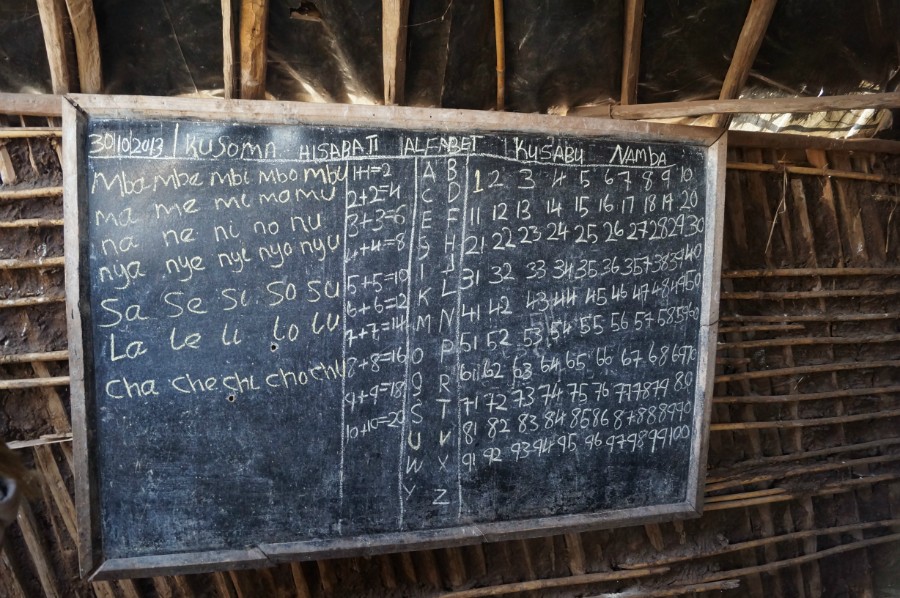 30/10/2013 KUSOMA HISABATI ALFABET KUSABU NAMBA
Mba mbe mbi mbo mbu
ma me mi mo mu
na ne ni no nu
nya nye nyi nyo nyu
Sa Se Si So Su
La Le Li Lo Lu
Cha Che Chi Cho Chu
1+1=2
2+2=4
3+3=6
4+4=8
5+5=10
6+6=12
7+7=14
8+8=16
9+9=18
10+10=20
A B
C D
E F
G H
I J
K L
M N
O P
Q R
S T
U V
W X
Y Z
1 2 3 4 5 6 7 8 9 10
11 12 13 14 15 16 17 18 19 20
21 22 23 24 25 26 27 28 29 30
31 32 33 34 35 36 37 38 39 40
41 42 43 44 45 46 47 48 49 50
51 52 53 54 55 56 57 58 59 60
61 62 63 64 65 66 67 68 69 70
71 72 73 74 75 76 77 78 79 80
81 82 83 84 85 86 87 88 89 90
91 92 93 94 95 96 97 98 99 100